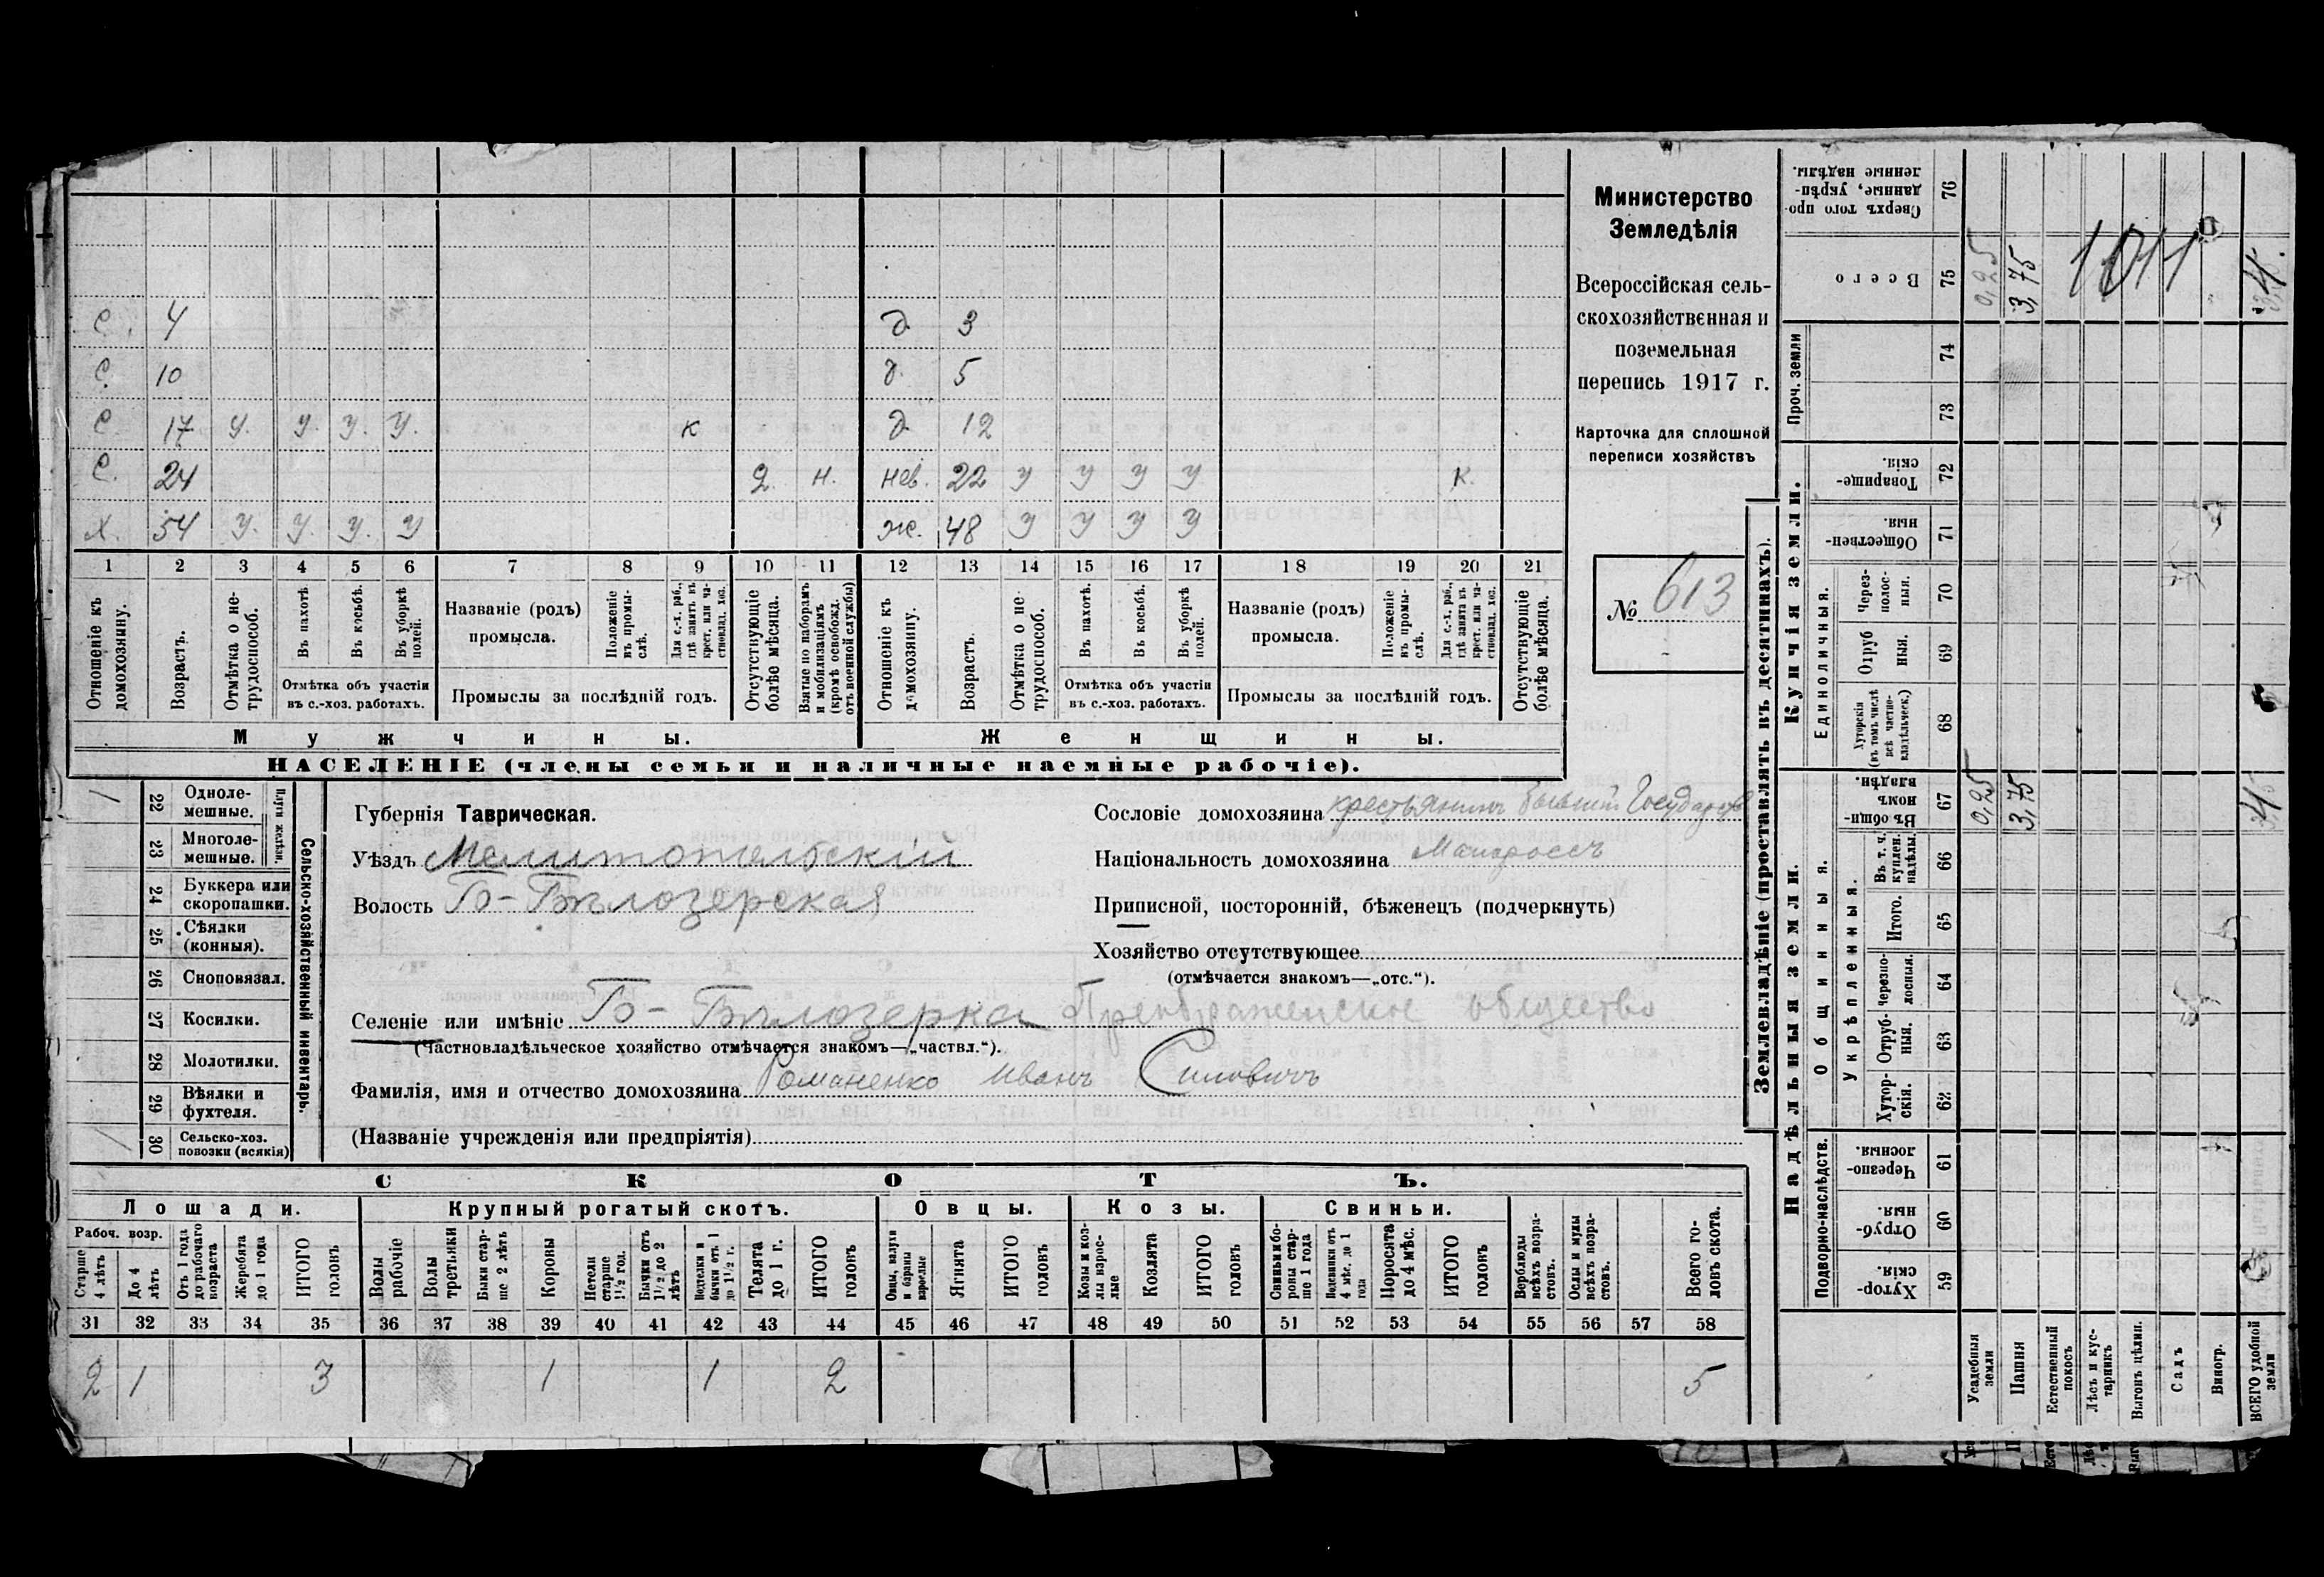 С. 4 д. 3
С. 10 д. 5
С 17 У. У. У. У. к д. 12
С. 24 2 н. нев. 22 У У У У к.
Х. 54 У. У. У. У ж. 48 У У У У
1 2 3 4 5 6 7 8 9 10 11 12 13 14 15 16 17 18 19 20 21
Отношеніе къ домохозяину.
Возрастъ.
Отмѣтка о не-трудоспособ.
Въ пахотѣ.
Въ косьбѣ.
Въ уборкѣ полей.
Отмѣтка объ участіи
въ с.-хоз. работахъ.
Названіе (родъ)
промысла.
Положеніе въ промы-слѣ.
Для с.-х. раб., гдѣ занятъ въ крест. или ча-стновлад. хоз.
Промыслы за послѣдній годъ.
Отсутствующіе болѣе мѣсяца.
Взятые по наборамъ и мобилизаціямъ (кромѣ освобожд. отъ военной службы)
Отношеніе къ домохозяину.
Возрастъ.
Отмѣтка о не-трудоспособ.
Въ пахотѣ.
Въ косьбѣ.
Въ уборкѣ полей.
Отмѣтка объ участіи
въ с.-хоз. работахъ.
Названіе (родъ)
промысла.
Положеніе въ промы-слѣ.
Для с.-х. раб., гдѣ занята въ крест. или ча-стновлад. хоз.
Промыслы за послѣдній годъ.
Отсутствующіе болѣе мѣсяца.
Мужчины. Женщины.
НАСЕЛЕНІЕ (члены семьи и наличные наемные рабочіе).
Министерство
Земледѣлія
Всероссійская сель-
скохозяйственная и
поземельная
перепись 1917 г.
Карточка для сплошной
переписи хозяйствъ
№ 613
Сельско-хозяйственный инвентарь.
Плуги желѣзн.
/ 22 Одноле-мешные.
23 Многоле-мешные.
24 Буккера или скоропашки.
25 Сѣялки (конныя).
26 Сноповязал.
27 Косилки.
28 Молотилки.
29 Вѣялки и фухтеля.
/ 30 Сельско-хоз. повозки (всякія)
Губернія Таврическая.
Уѣздъ Мелитопольскій
Волость Б-Бѣлозерская
Сословіе домохозяина крестьянинъ бывшій Государств
Національность домохозяина Малороссъ
Приписной, посторонній, бѣженецъ (подчеркнуть)
Хозяйство отсутствующее
(отмѣчается знакомъ—„отс.“).
Селеніе или имѣніе Б-Бѣлозерка Преображенское общество
(Частновладѣльческое хозяйство отмѣчается знакомъ—„частвл.“).
Фамилія, имя и отчество домохозяина Романенко Иванъ Силовичъ
(Названіе учрежденія или предпріятія)
СКОТЪ.
Лошади. Крупный рогатый скотъ. Овцы. Козы. Свиньи.
Рабоч. возр.
Старше 4 лѣтъ
До 4 лѣтъ
Отъ 1 года до рабочаго возраста
Жеребята до 1 года
ИТОГО головъ
Волы рабочіе
Волы третьяки
Быки стар-ше 2 лѣтъ
Коровы
Нетели старше 1½ год.
Бычки отъ 1½ до 2 лѣтъ
Подтелки и бычки отъ 1 до 1½ г.
Телята до 1 г.
ИТОГО головъ
Овцы, валухи и бараны взрослые
Ягнята
ИТОГО головъ
Козы и коз-лы взрос-лые
Козлята
ИТОГО головъ
Свиньи и бо-ровы стар-ше 1 года
Подсвинки отъ 4 мѣс. до 1 года
Поросята до 4 мѣс.
ИТОГО головъ
Верблюды всѣхъ возра-стовъ.
Ослы и мулы всѣхъ возра-стовъ.
Всего го-ловъ скота.
31 32 33 34 35 36 37 38 39 40 41 42 43 44 45 46 47 48 49 50 51 52 53 54 55 56 57 58
2 1 3 1 1 2 5
Землевладѣніе (проставлять въ десятинахъ).
Надѣльныя земли. Купчія земли. Проч. земли
Подворно-наслѣдств.
Общинныя.
Укрѣпленныя.
Единоличныя.
Сверхъ того про-данные, укрѣп-ленные надѣлы. 76
Всего 75 0,25 3,75 1011 4.
74
73
Товарище-скія. 72
Обществен-ныя. 71
Через-полос-ныя. 70
Отруб ныя. 69
Хуторскія (въ томъ числѣ всѣ частно-владѣльческ.) 68
Въ общи-номъ владѣн. 67 0,25 3,75 4
Въ т. ч. куплен. надѣлы. 66
Итого. 65
Черезпо-лосныя. 64
Отруб-ныя. 63
Хутор-скія. 62
Черезпо-лосныя. 61
Отруб-ныя. 60
Хутор-скія. 59
Усадебныя земли
Пашня
Естественный покосъ
Лѣсъ и кус-тарникъ
Выгонъ цѣлин.
Садъ
Виногр.
ВСЕГО удобной земли